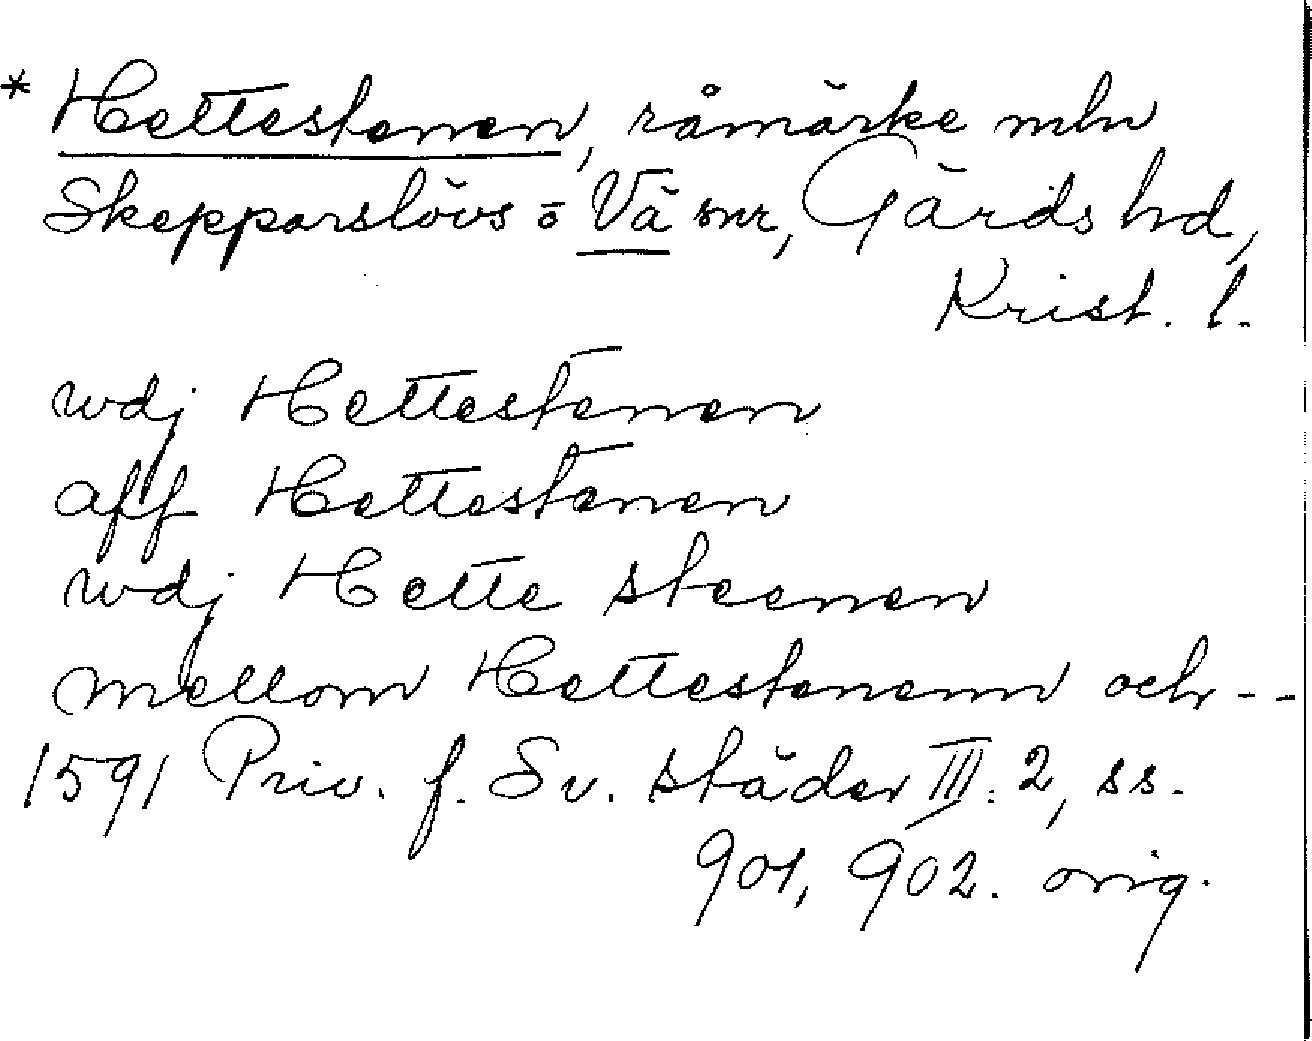 * Hettestenen, råmärke mln
Skepparslövs o Vä snr, Gärds hd,
Krist. l.
wdj Hettestenen
aff Hettestenen
wdj Hette steenen
mellom Hettestenenn och--
1591 Priv. f. Sv. städer III:2, ss.
901, 902. orig.